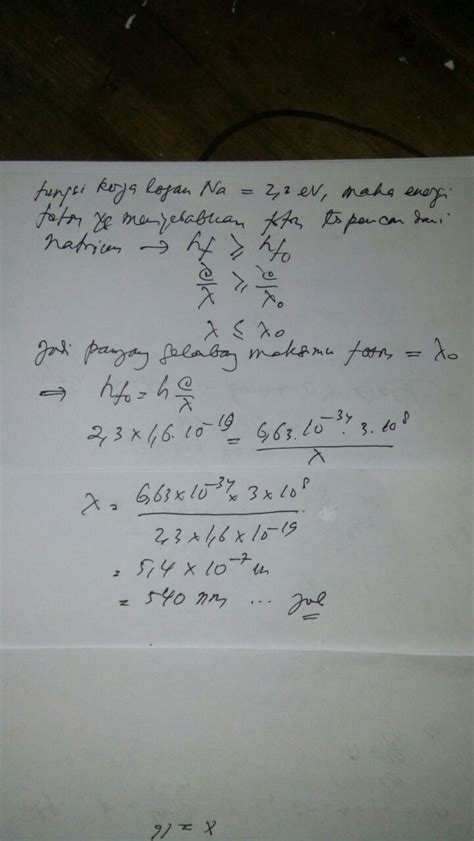 fungsi kerja logam Na = 2,3 eV, maka energi
foton yg menyebabkan foton terpancar dari
Natrium → hf ≥ hf₀
c/λ ≥ c/λ₀
λ ≤ λ₀
Jadi panjang gelombang maksimum foton = λ₀
⇒ hf₀ = h c/λ
2,3 × 1,6 · 10⁻¹⁹ = 6,63 · 10⁻³⁴ · 3 · 10⁸ / λ
λ = 6,63 × 10⁻³⁴ × 3 × 10⁸ / 2,3 × 1,6 × 10⁻¹⁹
= 5,4 × 10⁻⁷ m
= 540 nm ...
x = 16